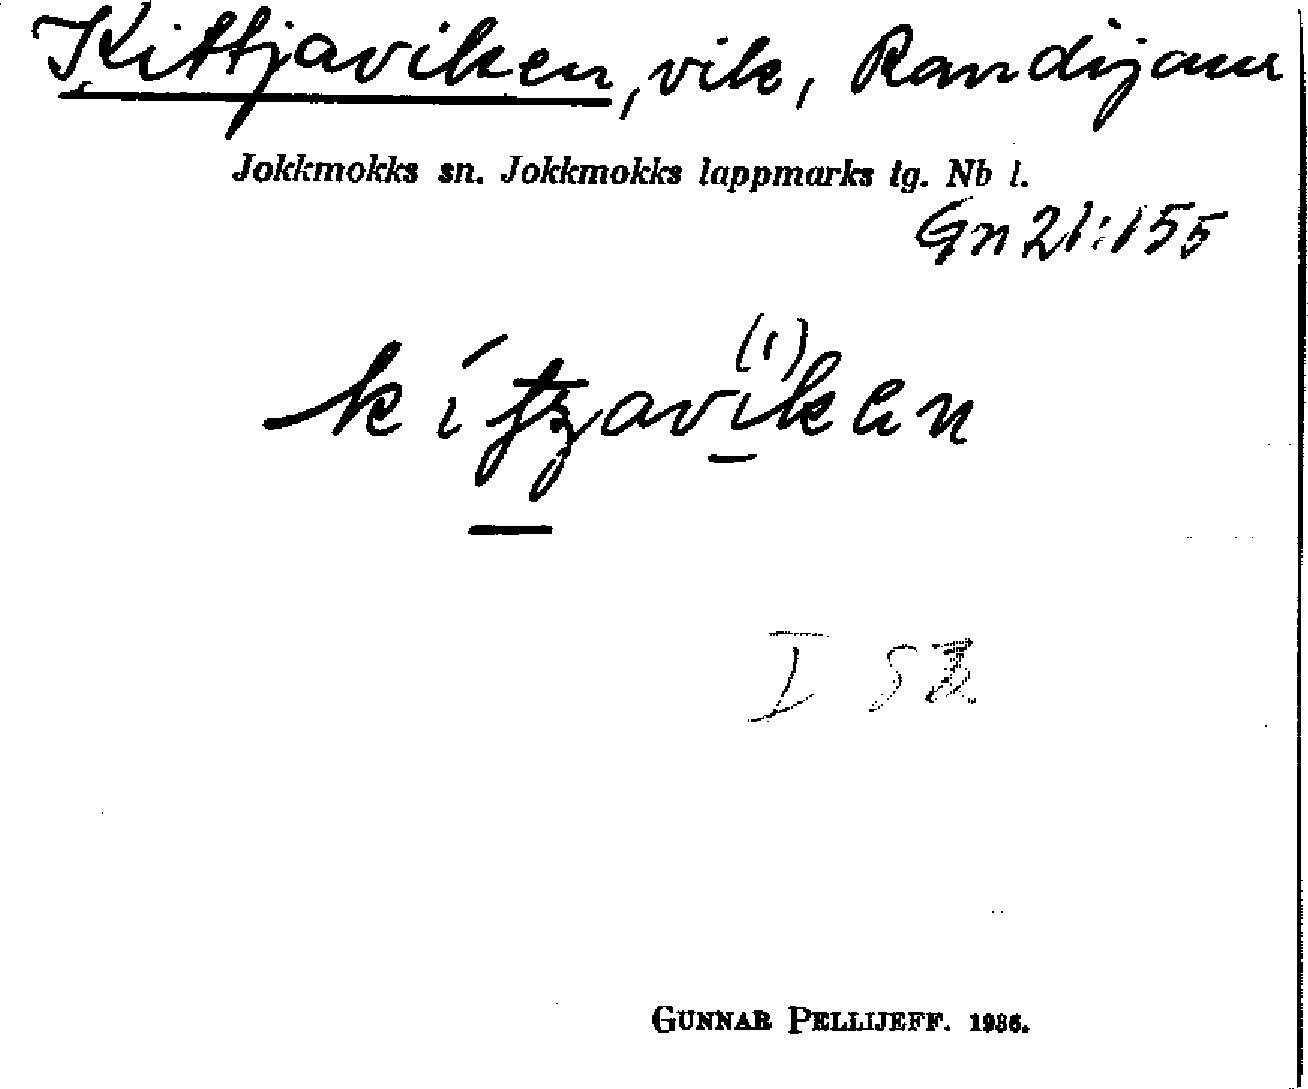 Kittjaviken, vik, Randijaur
Jokkmokks sn. Jokkmokks lappmarks tg. Nb l.
Gn 21:155
(ı)
kítʒavıken
I
GUNNAR PELLIJEFF. 1936.